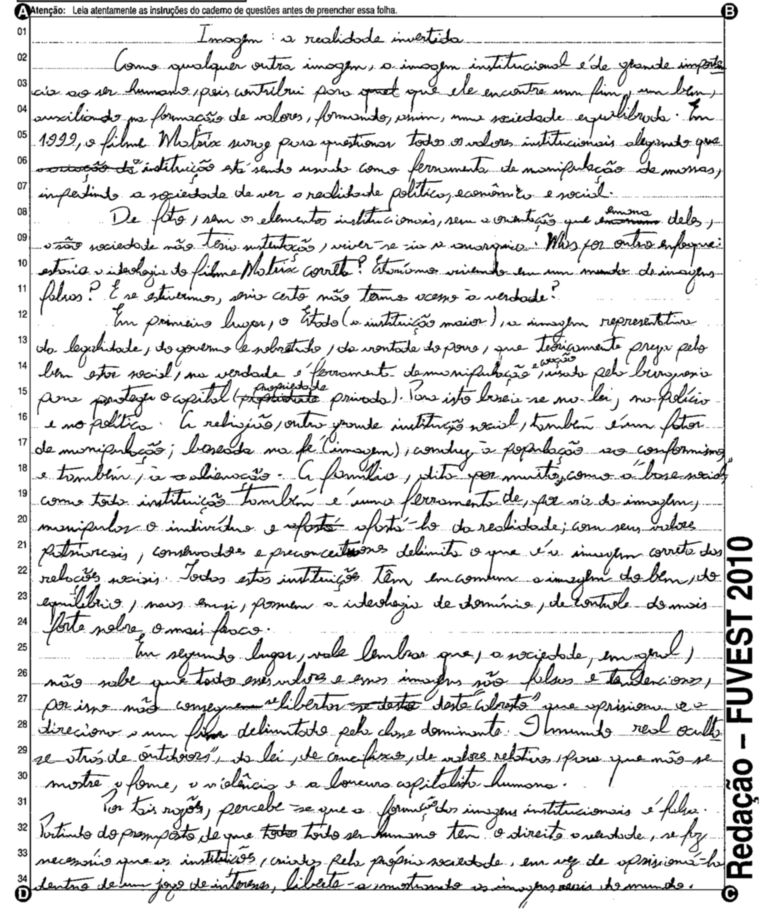 A Atenção: Leia atentamente as instruções do caderno de questões antes de preencher essa folha. B
01 Imagem: a realidade invertida
02 Como qualquer outra imagem, a imagem institucional é de grande importân
03 cia ao ser humano, pois contribui para que ele encontre um fim, um bem,
04 auxiliando na formação de valores, formando, assim, uma sociedade equilibrada. Em
05 1999, o filme Matrix surge para questionar todos os valores institucionais alegando que
06 instituição está sendo usada como ferramenta de manipulação de massas,
07 impedindo a sociedade de ver a realidade política, econômica e social.
08 De fato, sem os elementos institucionais, sem a orientação que emana deles,
09 a sociedade não teria sustentação, viver-se-ia a anarquia. Mas por outro enfoque:
10 estaria a ideologia do filme Matrix correta? Estaríamos vivendo em um mundo de imagens
11 falsas? E se estivermos, seria certo não termos acesso à verdade?
12 Em primeiro lugar, o Estado (a instituição maior), a imagem representativa
13 da legalidade, do governo e sobretudo, da vontade do povo, que teoricamente preza pelo
14 bem estar social, na verdade é ferramenta de manipulação e coação, usada pela burguesia
15 para proteger o capital (propriedade privada). Para isto baseia-se na lei, na polícia
16 e na política. A religião, outra grande instituição social, também é um fator
17 de manipulação; baseada na fé (imagem), conduz à população ao conformismo
18 e também, à alienação. A família, dita por muitos, como a base social,
19 como toda instituição também é uma ferramenta de, por via da imagem,
20 manipular o indivíduo e afastá-lo da realidade; com seus valores
21 patriarcais, conservadores e preconceituosos delimita o que é a imagem correta das
22 relações sociais. Todas estas instituições têm em comum a imagem do bem, do
23 equilíbrio, mas em si, possuem a ideologia de domínio, de controle do mais
24 forte sobre o mais fraco.
25 Em segundo lugar, vale lembrar que, a sociedade, em geral,
26 não sabe que todos esses valores e essas imagens são falsos e tendenciosos,
27 por isso não consegue "libertar deste "cabresto" que aprisiona e a
28 direciona a um fim delimitado pela classe dominante. O mundo real oculta-
29 se atrás de outdoors", da lei, de crucifixos, de valores relativos, para que não se
30 mostre a fome, a violência e a loucura capitalista humana.
31 Por tais razões, percebe-se que a formação das imagens institucionais é falsa.
32 Partindo do pressuposto, de que todo ser humano tem o direito a verdade, se faz
33 necessário que as instituições, criadas pela própria sociedade, em vez de aprisioná-la
34 dentro de um jogo de interesses, liberte-a, mostrando as imagens reais do mundo.
D C
Redação – FUVEST 2010